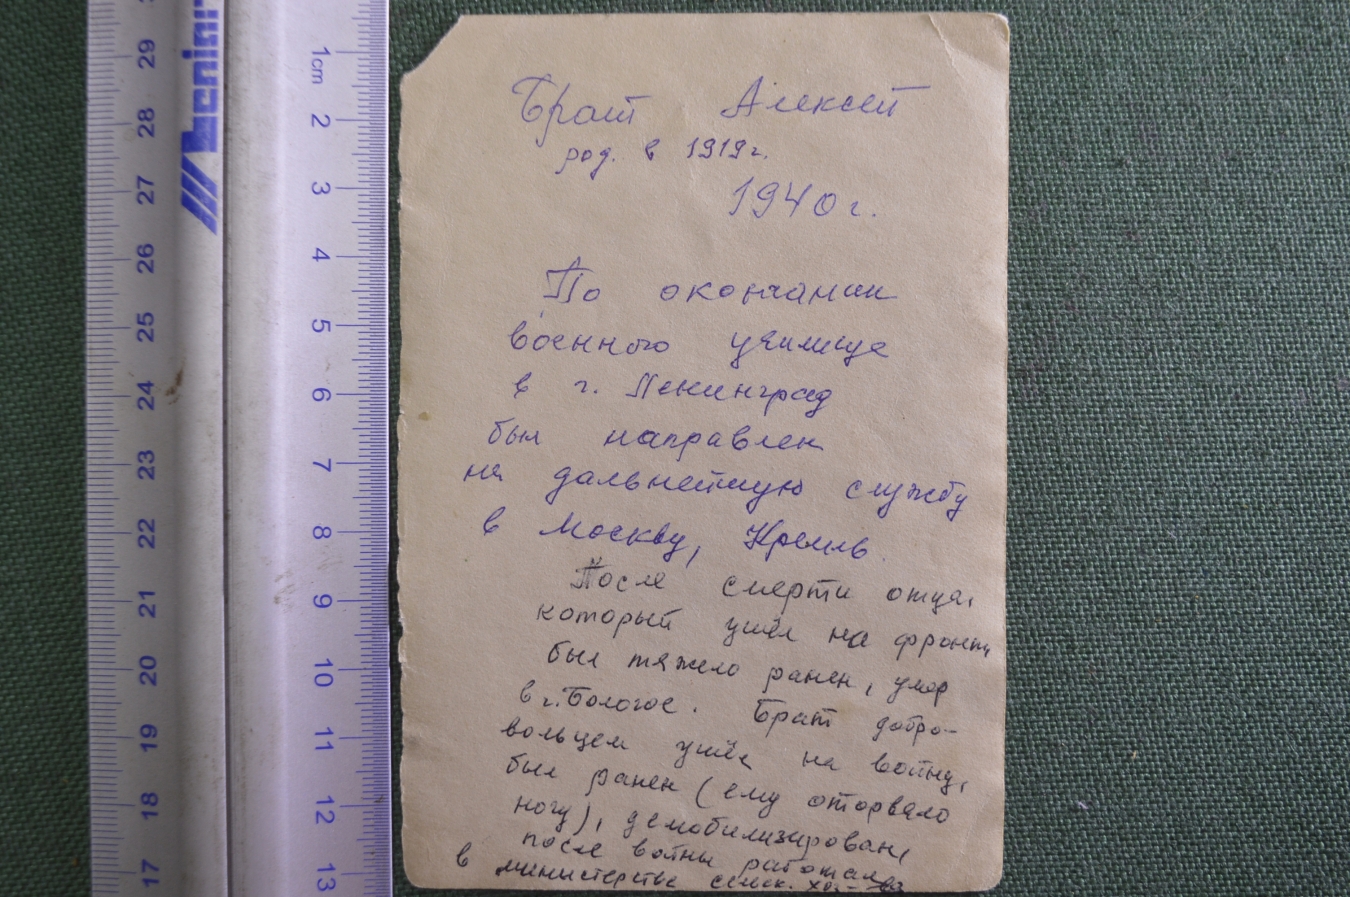 Брат Алексей
род. в 1919г.
1940г.
По окончании
военного училища
в г. Ленинград
был направлен
на дальнейшую службу
в Москву, Кремль.
После смерти отца,
который ушёл на фронт,
был тяжело ранен, умер
в г. Бологое. Брат добро-
вольцем ушёл на войну,
был ранен (ему оторвало
ногу), демобилизирован,
после войны работал
в министерстве сельск. хоз-ва
1cm
2
3
4
5
6
7
8
9
10
11
12
13
29
28
27
26
25
24
23
22
21
20
19
18
17